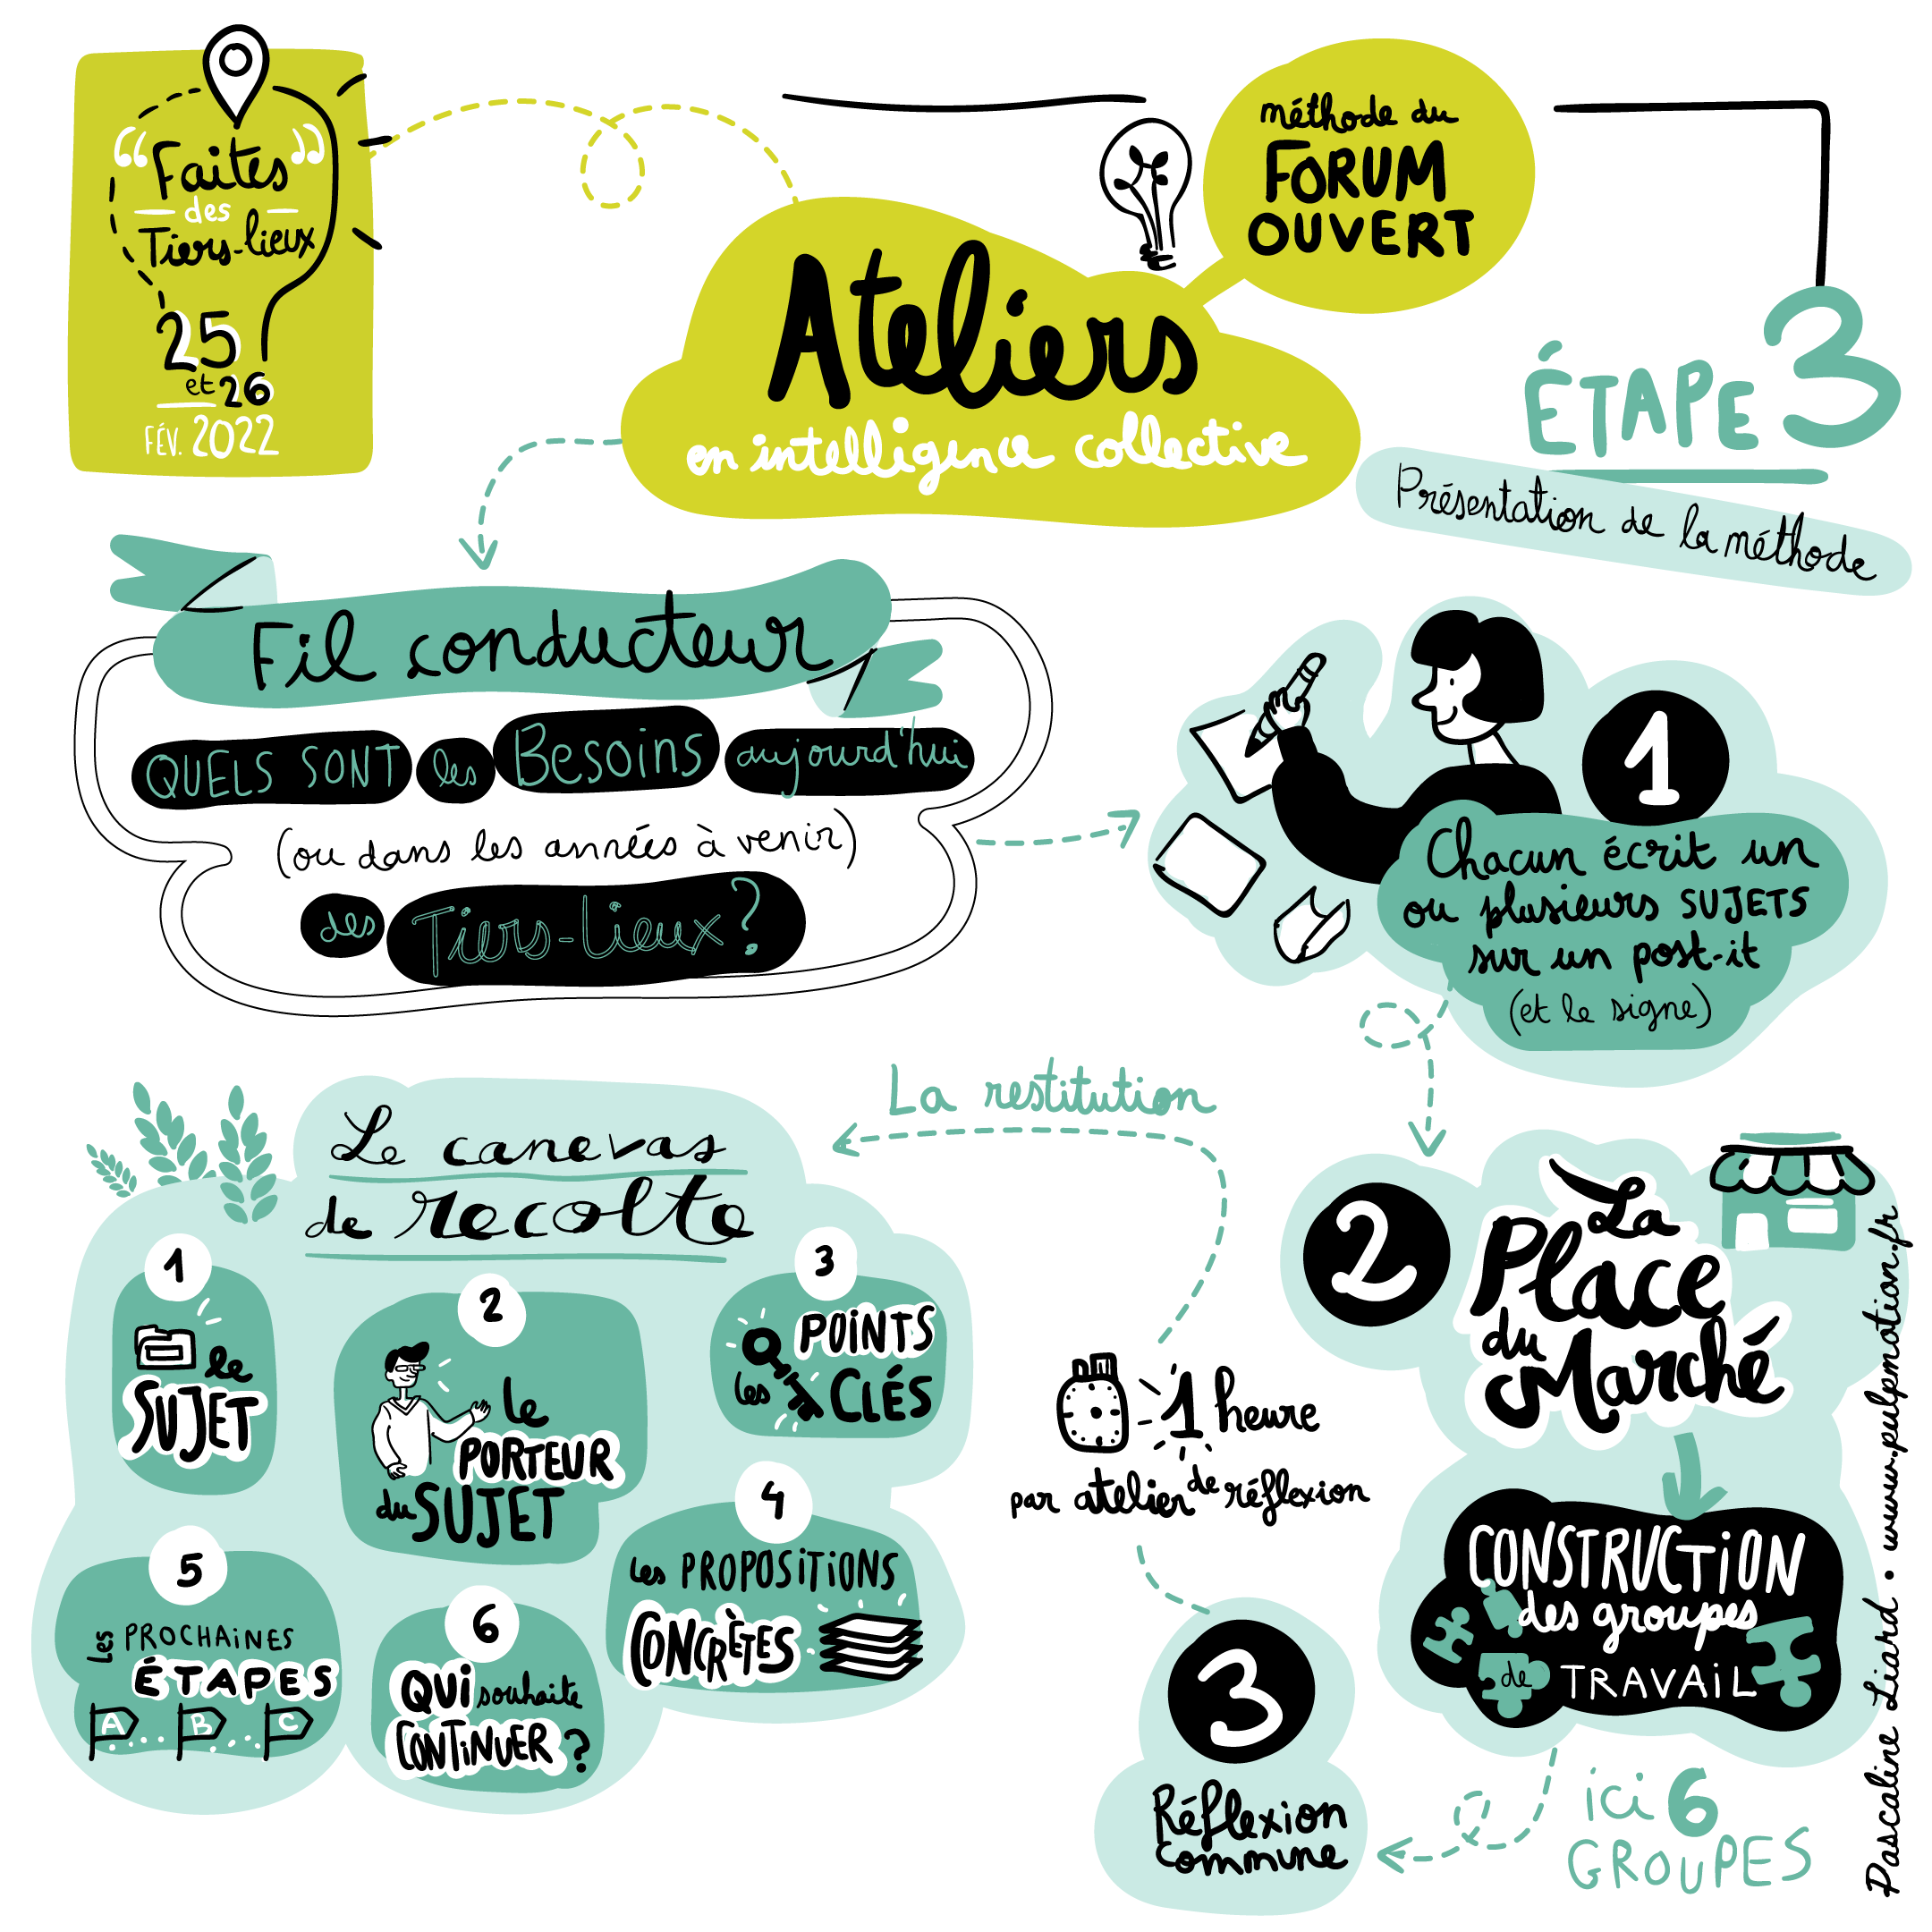 “Faites”
des
Tiers-lieux
25
et 26
FÉV. 2022
méthode du
FORUM
OUVERT
Ateliers
en intelligence collective
ÉTAPE 3
Présentation de la méthode
Fil conducteur
QUELS SONT les Besoins aujourd'hui
(ou dans les années à venir)
des Tiers-Lieux?
1
Chacun écrit un
ou plusieurs SUJETS
sur un post-it
(et le signe)
2
La
Place
du
Marché
CONSTRUCTION
des groupes
de TRAVAIL
ici 6
GROUPES
3
Réflexion
commune
1 heure
par atelier de réflexion
La restitution
Le canevas
de recolte
1
le
SUJET
2
le
PORTEUR
du SUJET
3
les POINTS
CLÉS
4
les PROPOSITIONS
CONCRÈTES
5
les PROCHAINES
ÉTAPES
A B C
6
QUI souhaite
CONTINUER ?
Pascaline Liard • www.pulpmotion.fr